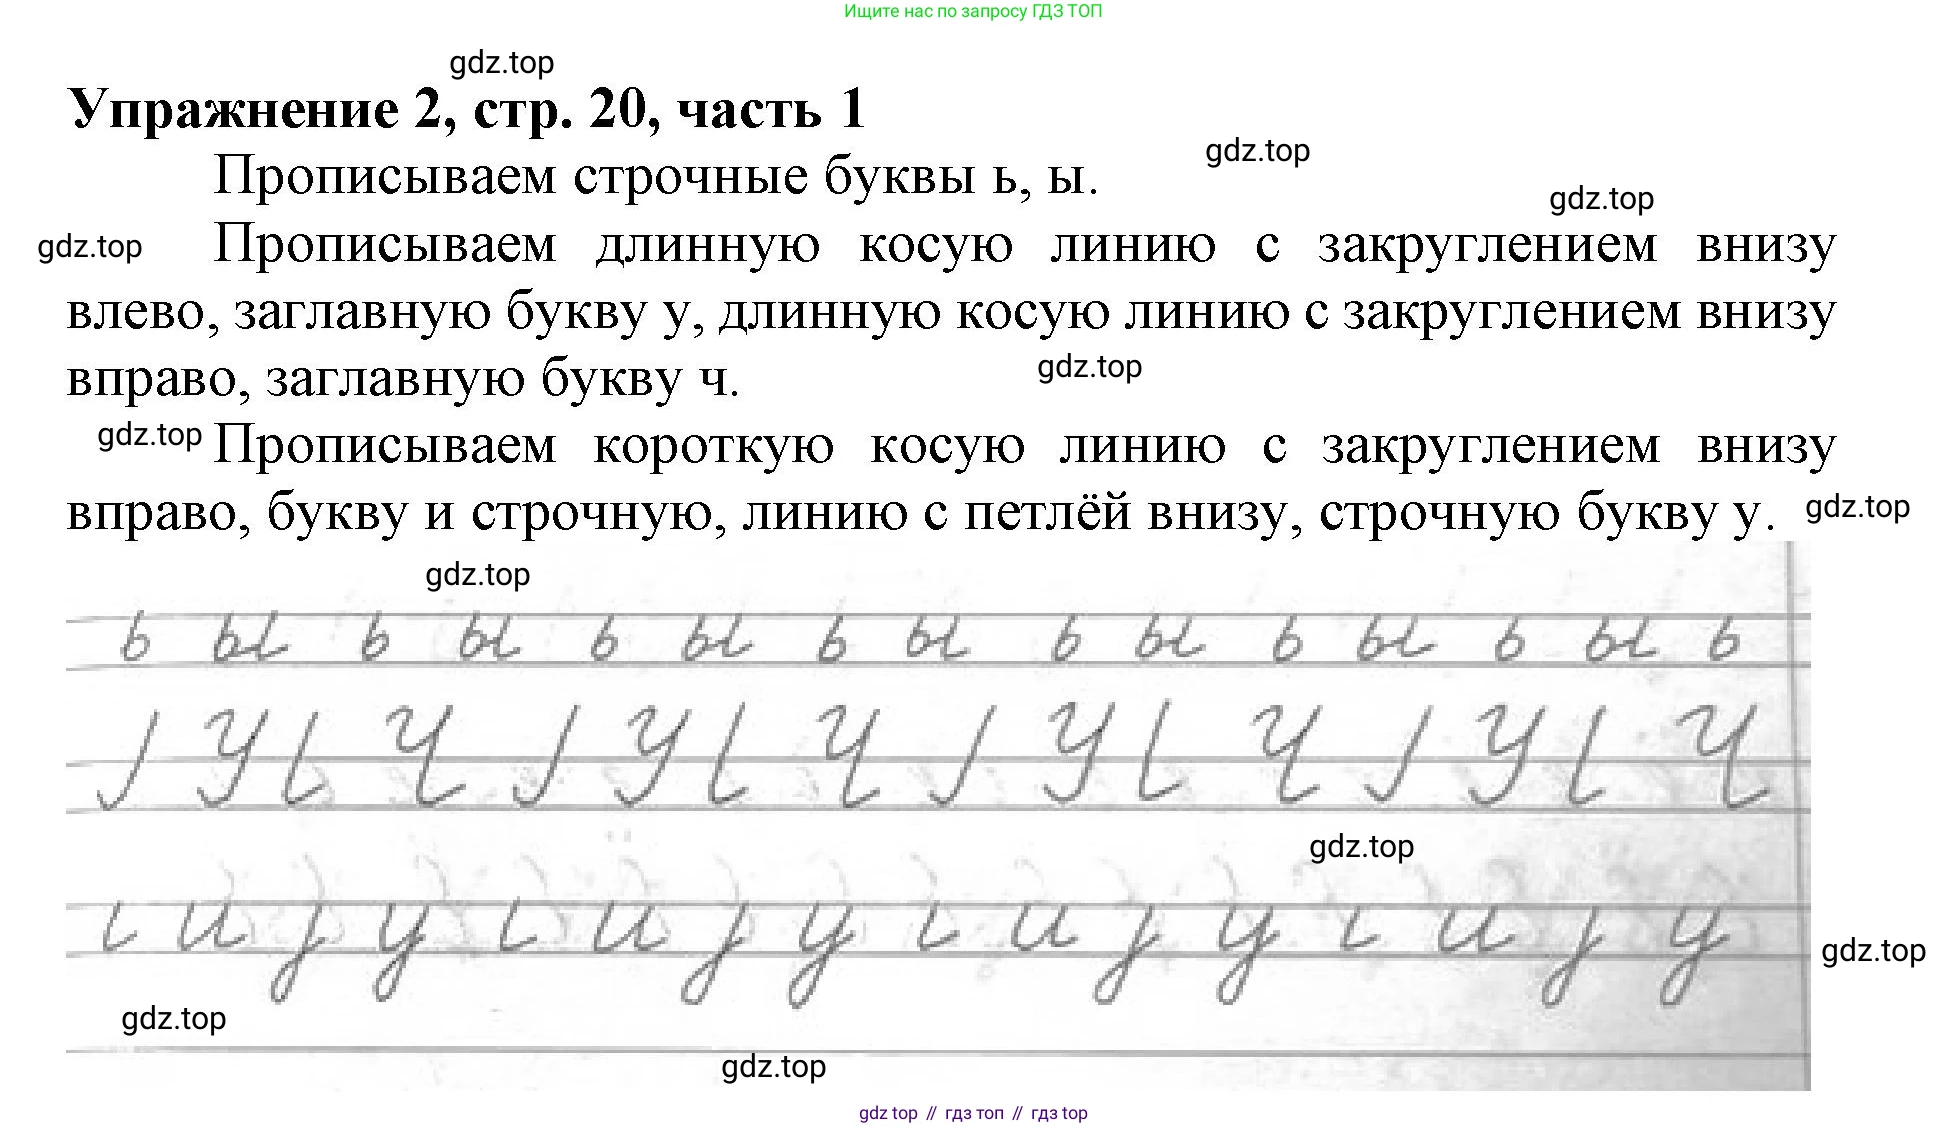 Ищите нас по запросу ГДЗ ТОП
gdz.top
Упражнение 2, стр. 20, часть 1
gdz.top
Прописываем строчные буквы ь, ы.
gdz.top
gdz.top
Прописываем длинную косую линию с закруглением внизу
влево, заглавную букву у, длинную косую линию с закруглением внизу
вправо, заглавную букву ч.
gdz.top
gdz.top
Прописываем короткую косую линию с закруглением внизу
вправо, букву и строчную, линию с петлёй внизу, строчную букву у.
gdz.top
gdz.top
ь ы ь ы ь ы ь ы ь ы ь ы ь ы ь
У Ч У Ч У Ч У Ч
gdz.top
и у и у и у и у
gdz.top
gdz.top
gdz.top
gdz top // гдз топ // гдз top